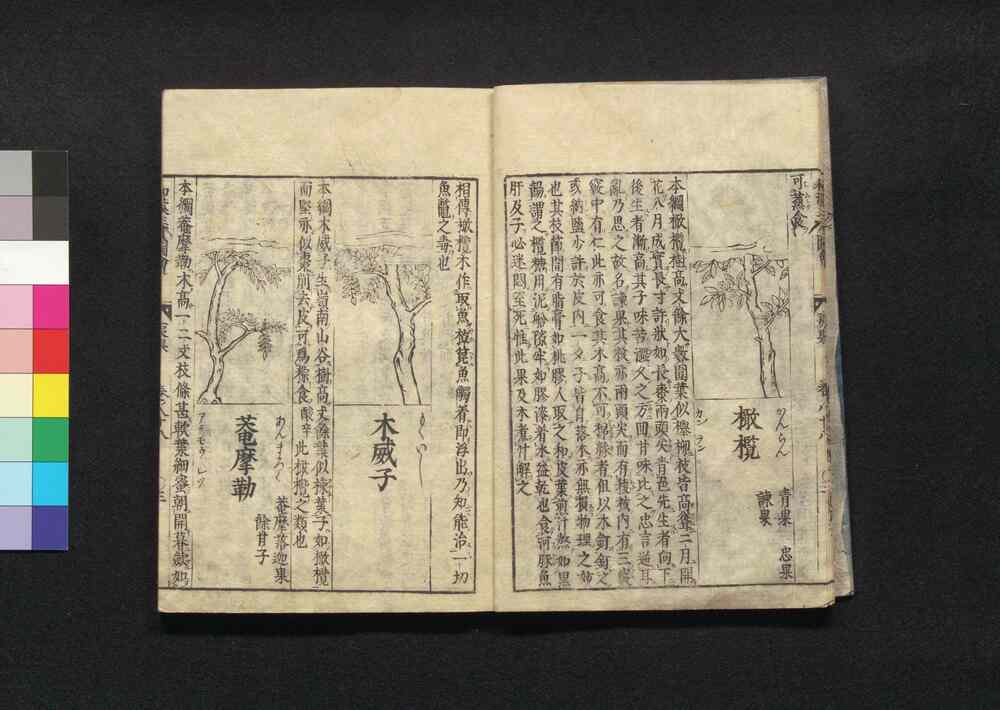 可蒸食
橄欖
かんらん
カン ラン
青果 忠果
諫果
本綱橄欖樹高丈餘大數圍葉似櫸柳枝皆高聳二月開
花八月成實長寸許狀如長棗兩頭尖青色先生者向下
後生者漸高其子味苦澀久之方回甘味比之忠言逆耳
亂乃思之故名諫果其核亦兩頭尖而有稜核內有三竅
竅中有仁此亦可食其木高不可梯緣者但以木釘釘之
或納鹽少許於皮內一夕子皆自落木亦無損物理之妙
也其枝節間有脂膏如桃膠人取之和皮葉煎汁熬如黑
餳謂之欖糖用泥船隙牢如膠漆着水益乾也食河豚魚
肝及子必迷悶至死惟此果及木煮汁解之
相傳橄欖木作取魚棹篦魚觸着即浮出乃知能治一切
魚鼈之毒也
木威子
もくいし
本綱木威子生嶺南山谷樹高丈餘葉似楝葉子如橄欖
而堅亦似棗削去皮可爲粽食酸辛此橄欖之類也
菴摩勒
あんまろく
菴摩落迦果
餘甘子
本綱菴摩勒木高一二丈枝條甚軟葉細蜜朝開暮歛如